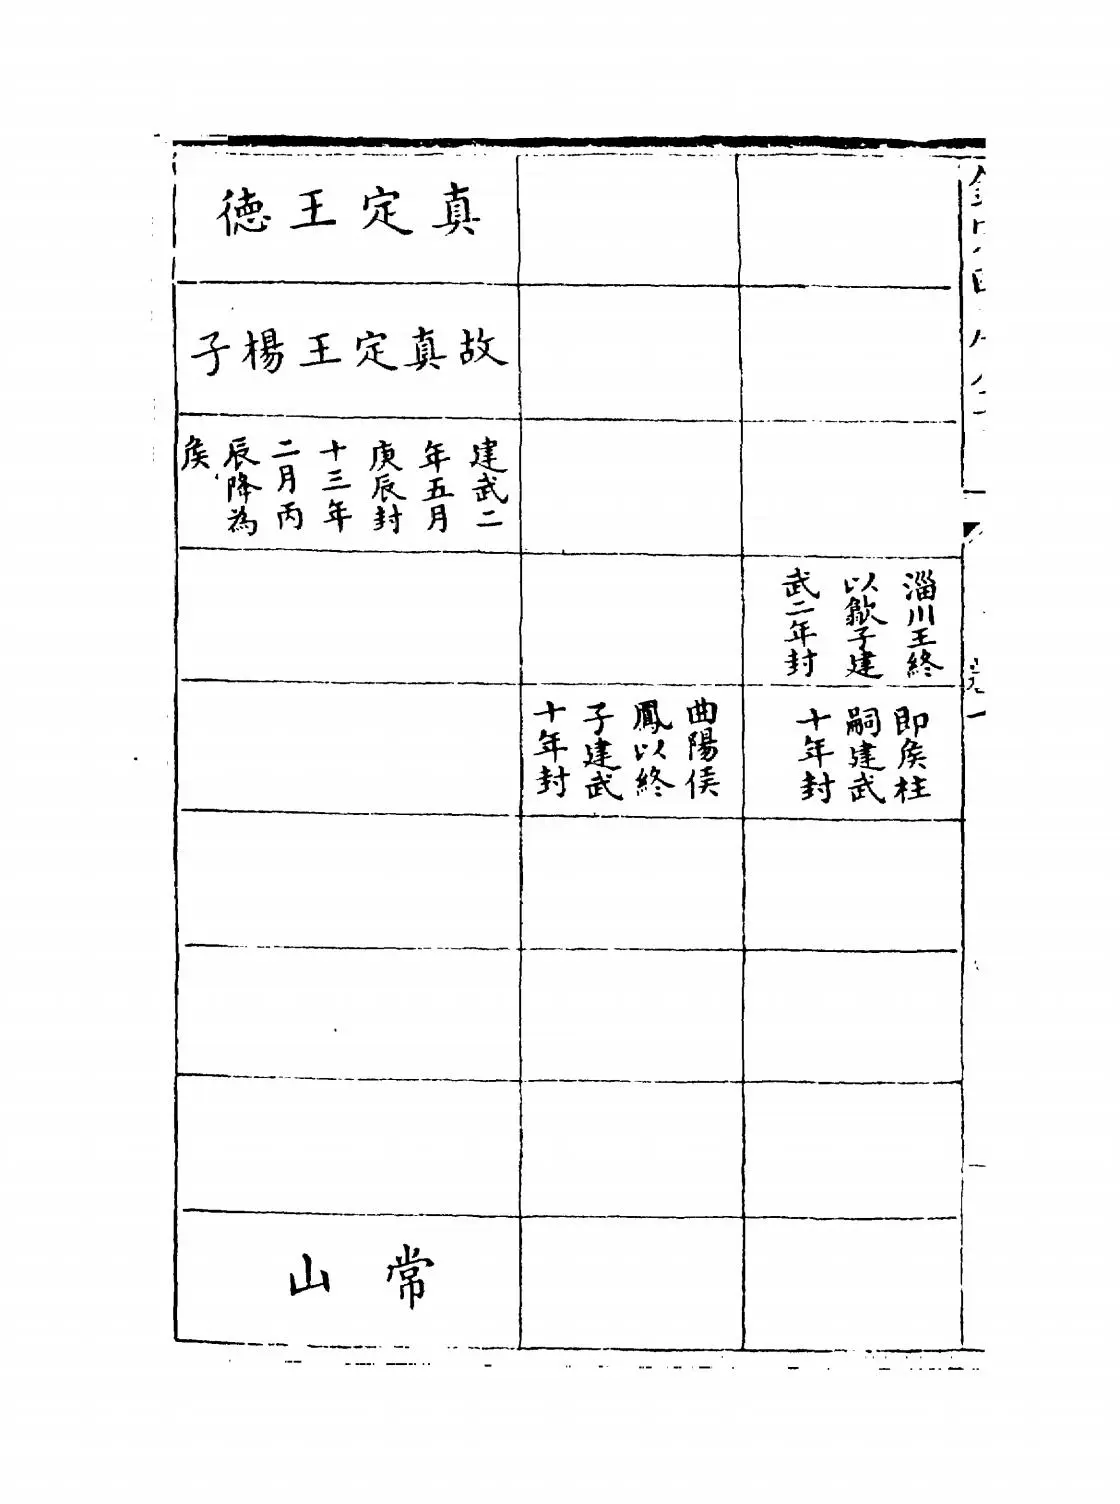 淄川王終
以歙子建
武二年封
即矦柱
嗣建武
十年封
曲陽侯
鳳以終
子建武
十年封
真定王德
故真定王楊子
建武二
年五月
庚辰封
十三年
二月丙
辰降為
矦
常山